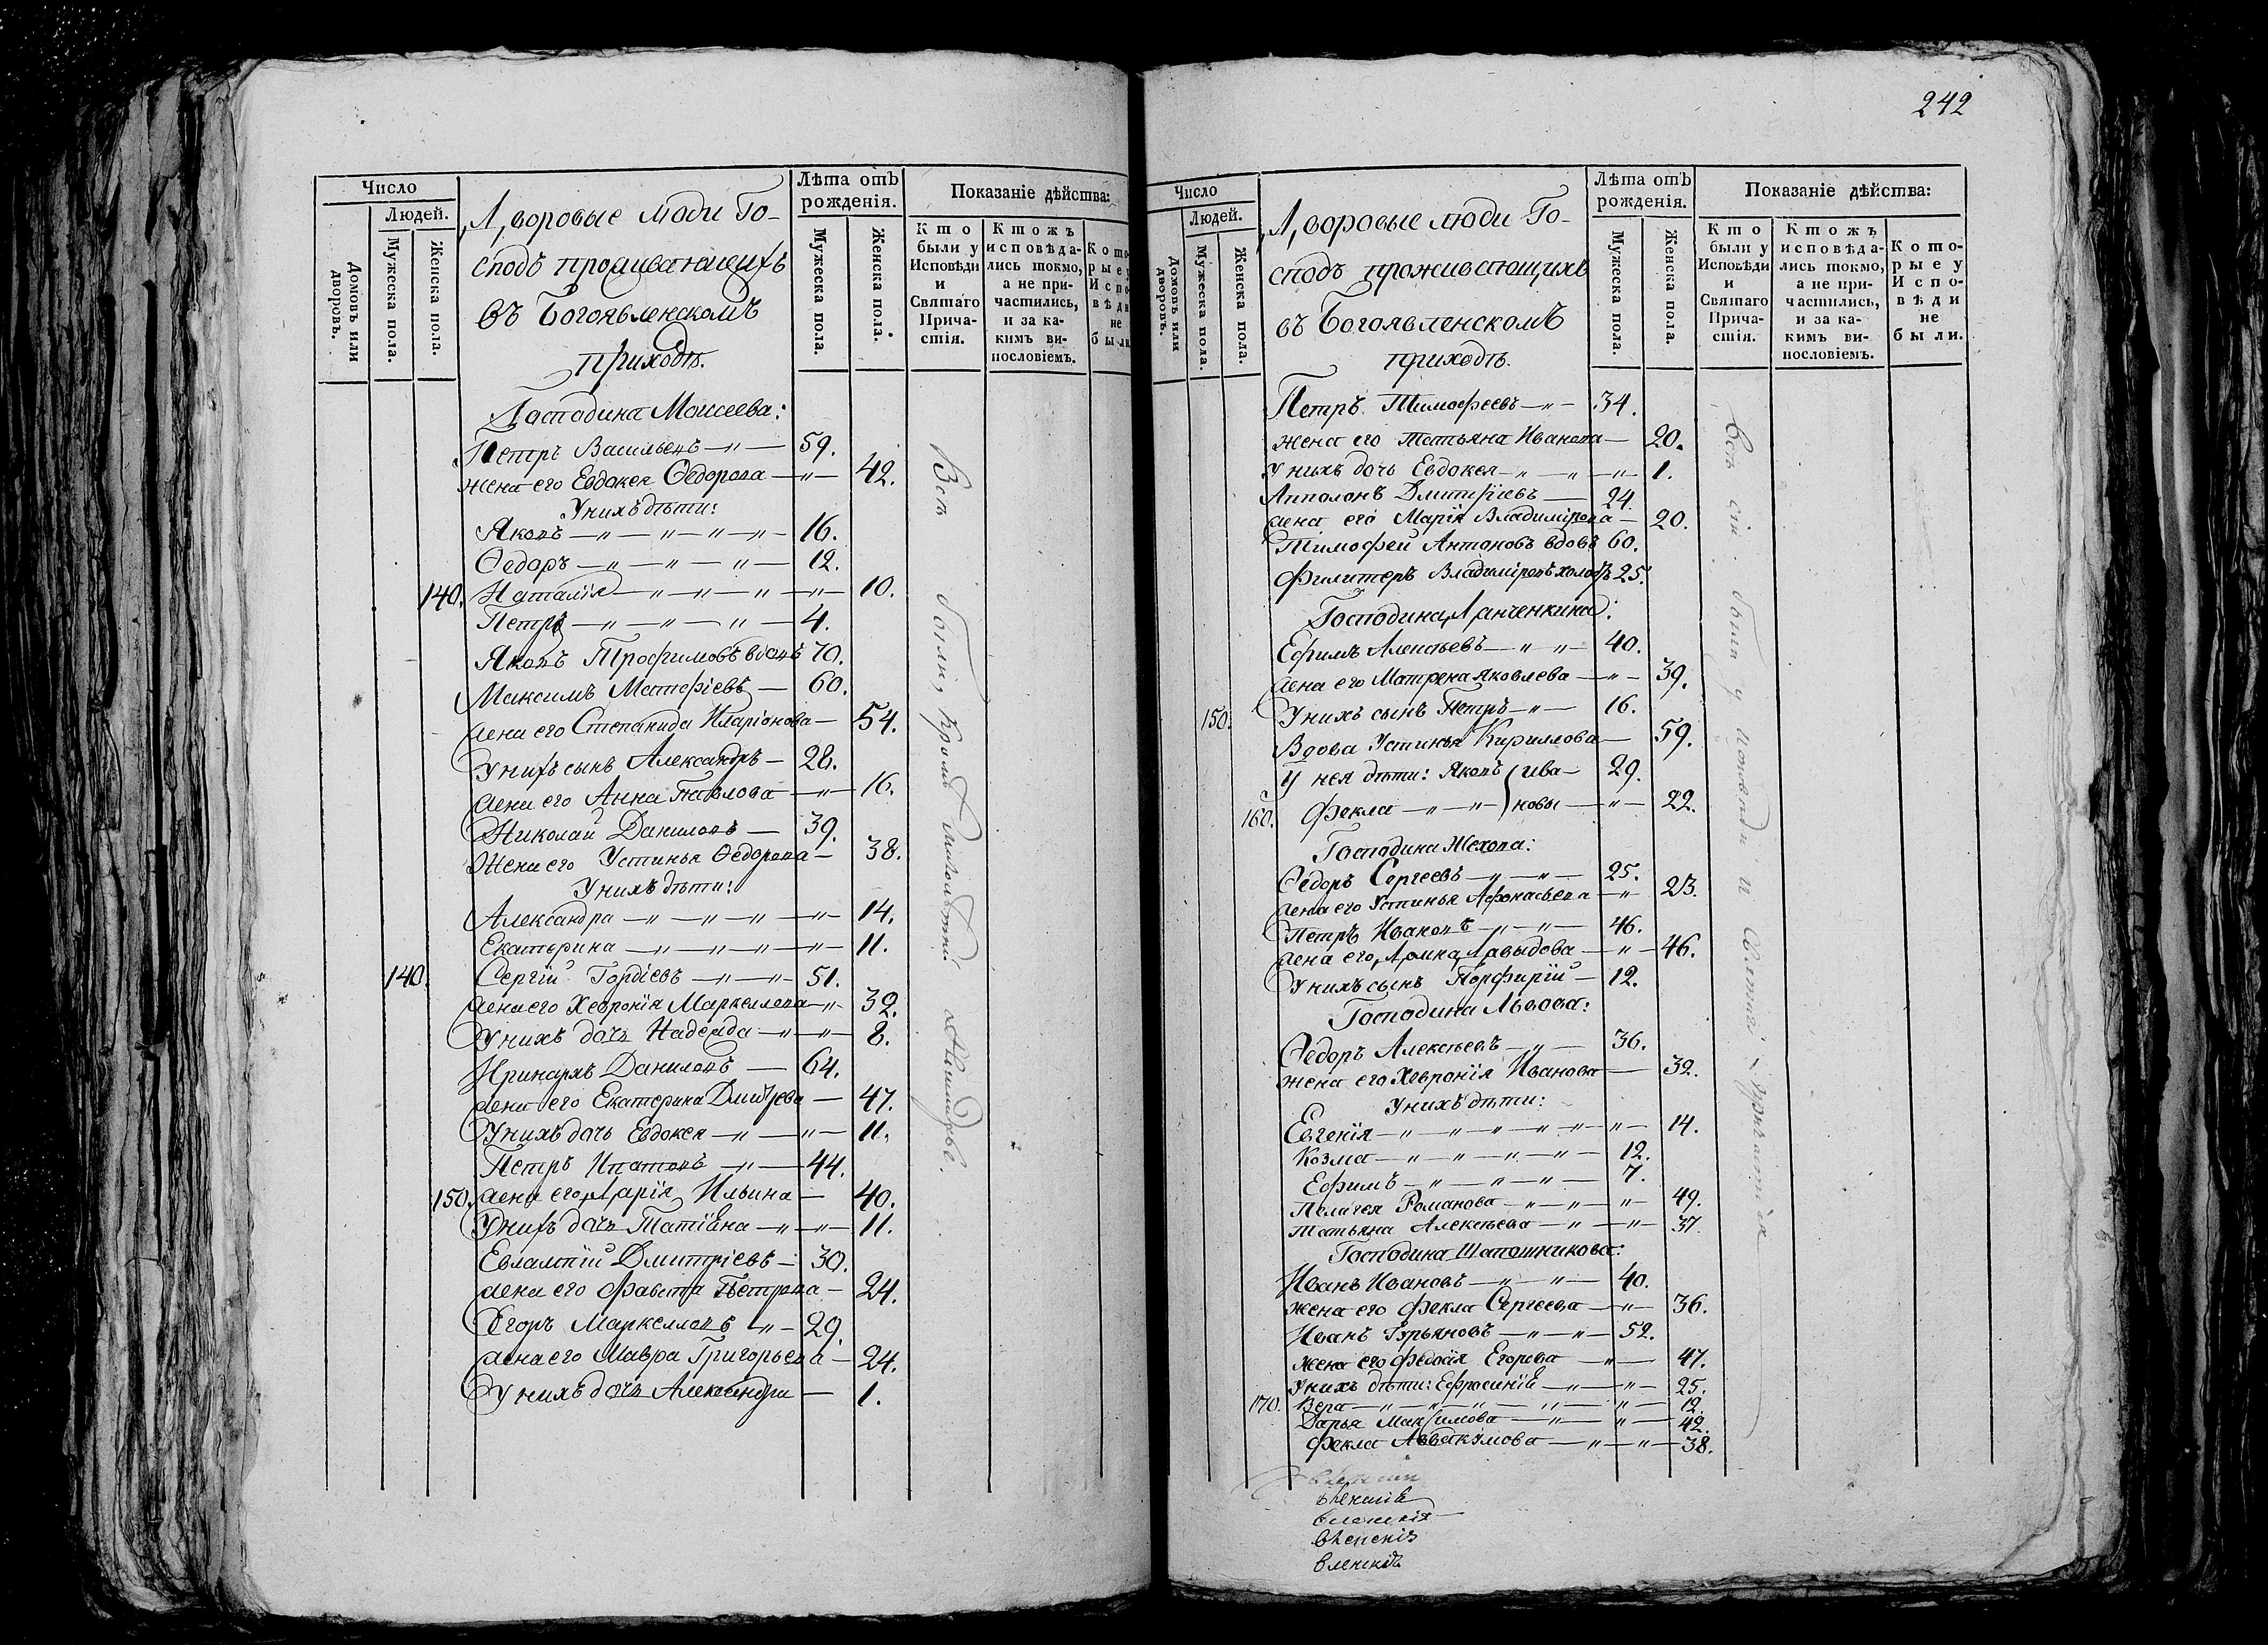 Число
Людей.
Домовъ или дворовъ.
Мужеска пола.
Женска пола.
Дворовые люди Го-
сподъ проживающихъ
въ Богоявленскомъ
приходѣ.
Лѣта отъ
рожденія.
Мужеска пола.
Женска пола.
Показаніе дѣйства:
Кто
были у
Исповѣди
и
Святаго
Прича-
стія.
Ктожъ
исповѣда-
лись токмо,
а не при-
частились,
и за ка-
кимъ ви-
нословіемъ.
Кото-
рые у
Испо-
вѣди
не
были.
Господина Моисеева:
Петръ Васильевъ —〃— 59.
жена его Евдокея Ѳедорова —〃— 42.
У нихъ дѣти:
Яковъ —〃—〃—〃—〃— 16.
Ѳедоръ —〃—〃—〃— 12.
140. Наталія —〃—〃—〃—〃— 10.
Петръ —〃—〃—〃— 4.
Яковъ Трофимовъ вдовъ 70.
Максимъ Матфіевъ — 60.
жена его Степанида Иларіонова — 54.
У нихъ сынъ Александръ — 28.
жена его Анна Павлова —〃— 16.
Николай Даниловъ — 39.
Жена его Устинья Ѳедорова — 38.
У нихъ дѣти:
Александра —〃—〃—〃—〃— 14.
Екатерина —〃—〃—〃—〃— 11.
140. Сергій Гордіевъ —〃—〃— 51.
жена его Хеvронія Маркелова —〃— 32.
У нихъ дочь Надежда —〃—〃— 8.
Иринархъ Даниловъ — 64.
жена его Екатерина Дмитрева — 47.
У нихъ дочь Евдокея —〃—〃— 11.
Петръ Ипатовъ —〃— 44.
150. жена его Дарія Ильина — 40.
У нихъ дочь Татіана —〃—〃— 11.
Евлампій Дмитріевъ — 30.
жена его Фавста Петрова — 24.
Егоръ Маркелловъ —〃— 29.
жена его Мавра Григорьева — 24.
У нихъ дочь Александра — 1.
Всѣ были, кромѣ
242
Число
Людей.
Домовъ или дворовъ.
Мужеска пола.
Женска пола.
Дворовые люди Го-
сподъ проживающихъ
въ Богоявленскомъ
приходѣ.
Лѣта отъ
рожденія.
Мужеска пола.
Женска пола.
Показаніе дѣйства:
Кто
были у
Исповѣди
и
Святаго
Прича-
стія.
Ктожъ
исповѣда-
лись токмо,
а не при-
частились,
и за ка-
кимъ ви-
нословіемъ.
Кото-
рые у
Испо-
вѣди
не
были.
Петръ Тимофеевъ —〃— 34.
жена его Татьяна Иванова — 20.
У нихъ дочь Евдокея —〃—〃—〃— 1.
Апполонъ Дмитріевъ — 24.
жена его Марія Владимірова — 20.
Тимофей Антоновъ вдовъ 60.
Филитеръ Владиміровъ холостъ 25.
Господина Данченкина:
Ефимъ Алексѣевъ —〃—〃— 40.
жена его Матрена Яковлева —〃— 39.
150. У нихъ сынъ Петръ —〃— 16.
Вдова Устинья Кириллова — 59.
У нея дѣти: Яковъ ива— 29.
160. Фекла —〃—〃— новы —〃— 22.
Господина Жехова:
Ѳедоръ Сергеевъ —〃—〃— 25.
жена его Устинья Афонасьева —〃— 23.
Петръ Ивановъ —〃—〃— 46.
жена его Домна Давыдова —〃— 46.
У нихъ сынъ Порфирій — 12.
Господина Львова:
Ѳедоръ Алексѣевъ —〃— 36.
жена его Хевронія Иванова — 32.
У нихъ дѣти:
Евгенія —〃—〃—〃—〃—〃—〃— 14.
Козма —〃—〃—〃—〃— 12.
Ефимъ —〃—〃—〃— 7.
Пелагея Романова —〃—〃—〃— 49.
Татьяна Алексѣева —〃—〃— 37.
Господина Шапошникова:
Иванъ Ивановъ —〃—〃— 40.
жена его Фекла Сергеева —〃— 36.
Иванъ Гурьяновъ —〃—〃— 52.
жена его Федосія Егорова —〃— 47.
У нихъ дѣти: Ефросинія —〃—〃— 25.
170. Вера —〃—〃—〃—〃—〃— 12.
Дарья Максимова —〃—〃— 42.
Фекла Аввакумова —〃—〃— 38.
Всѣ сіи были у исповѣди и Святаго причастія